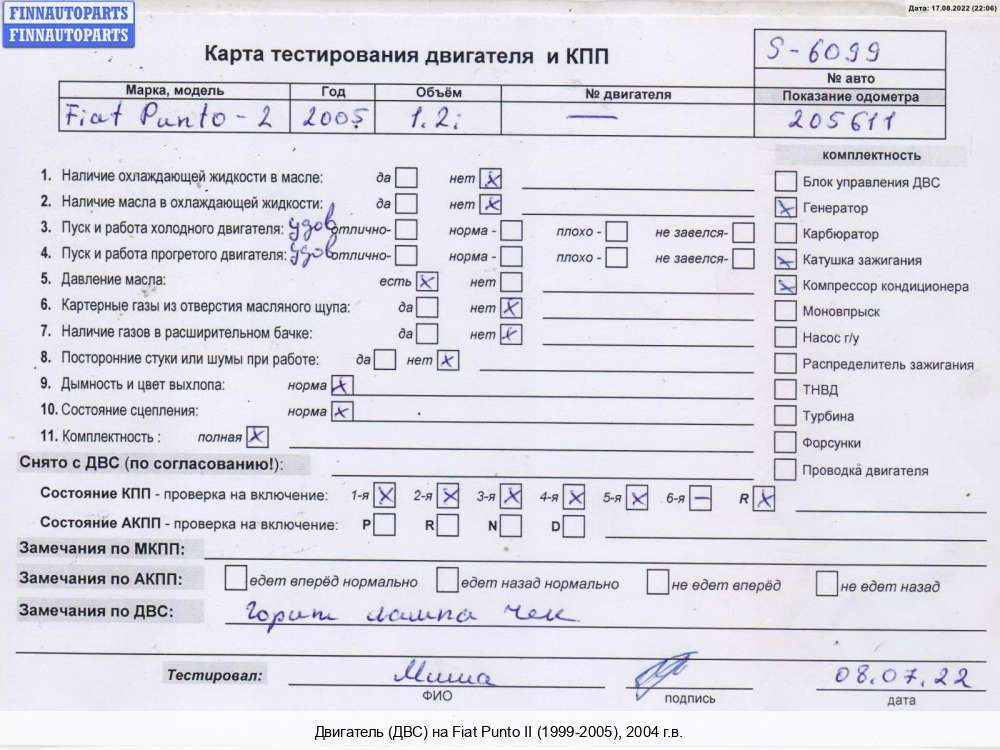 FINNAUTOPARTS
FINNAUTOPARTS
Дата: 17.08.2022 (22:06)
Карта тестирования двигателя и КПП
S-6099
№ авто
Марка, модель Год Объём № двигателя Показание одометра
Fiat Punto - 2 2005 1.2i — 205611
комплектность
1. Наличие охлаждающей жидкости в масле: да нет x
2. Наличие масла в охлаждающей жидкости: да нет x
3. Пуск и работа холодного двигателя: удов отлично- норма - плохо - не завелся-
4. Пуск и работа прогретого двигателя: удов отлично- норма - плохо - не завелся-
5. Давление масла: есть x нет
6. Картерные газы из отверстия масляного щупа: да нет x
7. Наличие газов в расширительном бачке: да нет x
8. Посторонние стуки или шумы при работе: да нет x
9. Дымность и цвет выхлопа: норма x
10. Состояние сцепления: норма x
11. Комплектность : полная x
Блок управления ДВС
x Генератор
Карбюратор
x Катушка зажигания
x Компрессор кондиционера
Моновпрыск
Насос г/у
Распределитель зажигания
ТНВД
Турбина
Форсунки
Проводка двигателя
Снято с ДВС (по согласованию!):
Состояние КПП - проверка на включение: 1-я x 2-я x 3-я x 4-я x 5-я x 6-я — R x
Состояние АКПП - проверка на включение: P R N D
Замечания по МКПП:
Замечания по АКПП: едет вперёд нормально едет назад нормально не едет вперёд не едет назад
Замечания по ДВС: Горит лампа чек
Тестировал: Миша 08.07.22
ФИО подпись дата
Двигатель (ДВС) на Fiat Punto II (1999-2005), 2004 г.в.